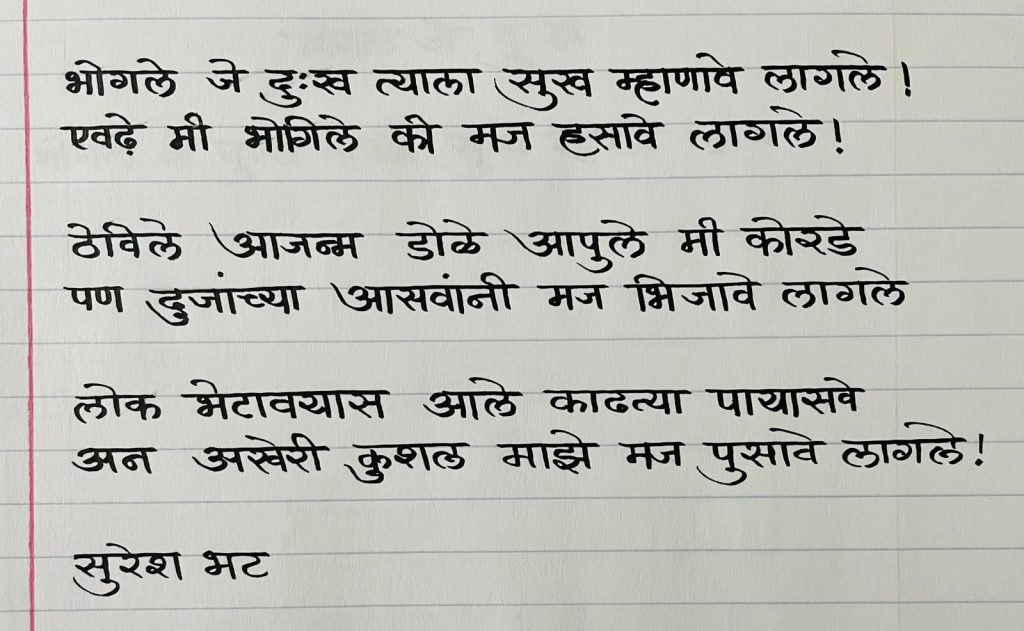 भोगले जे दुःख त्याला सुख म्हाणावे लागले!
एवढे मी भोगिले की मज हसावे लागले!
ठेविले आजन्म डोळे आपुले मी कोरडे
पण दुजांच्या आसवांनी मज भिजावे लागले
लोक भेटावयास आले काढत्या पायासवे
अन अखेरी कुशल माझे मज पुसावे लागले!
सुरेश भट